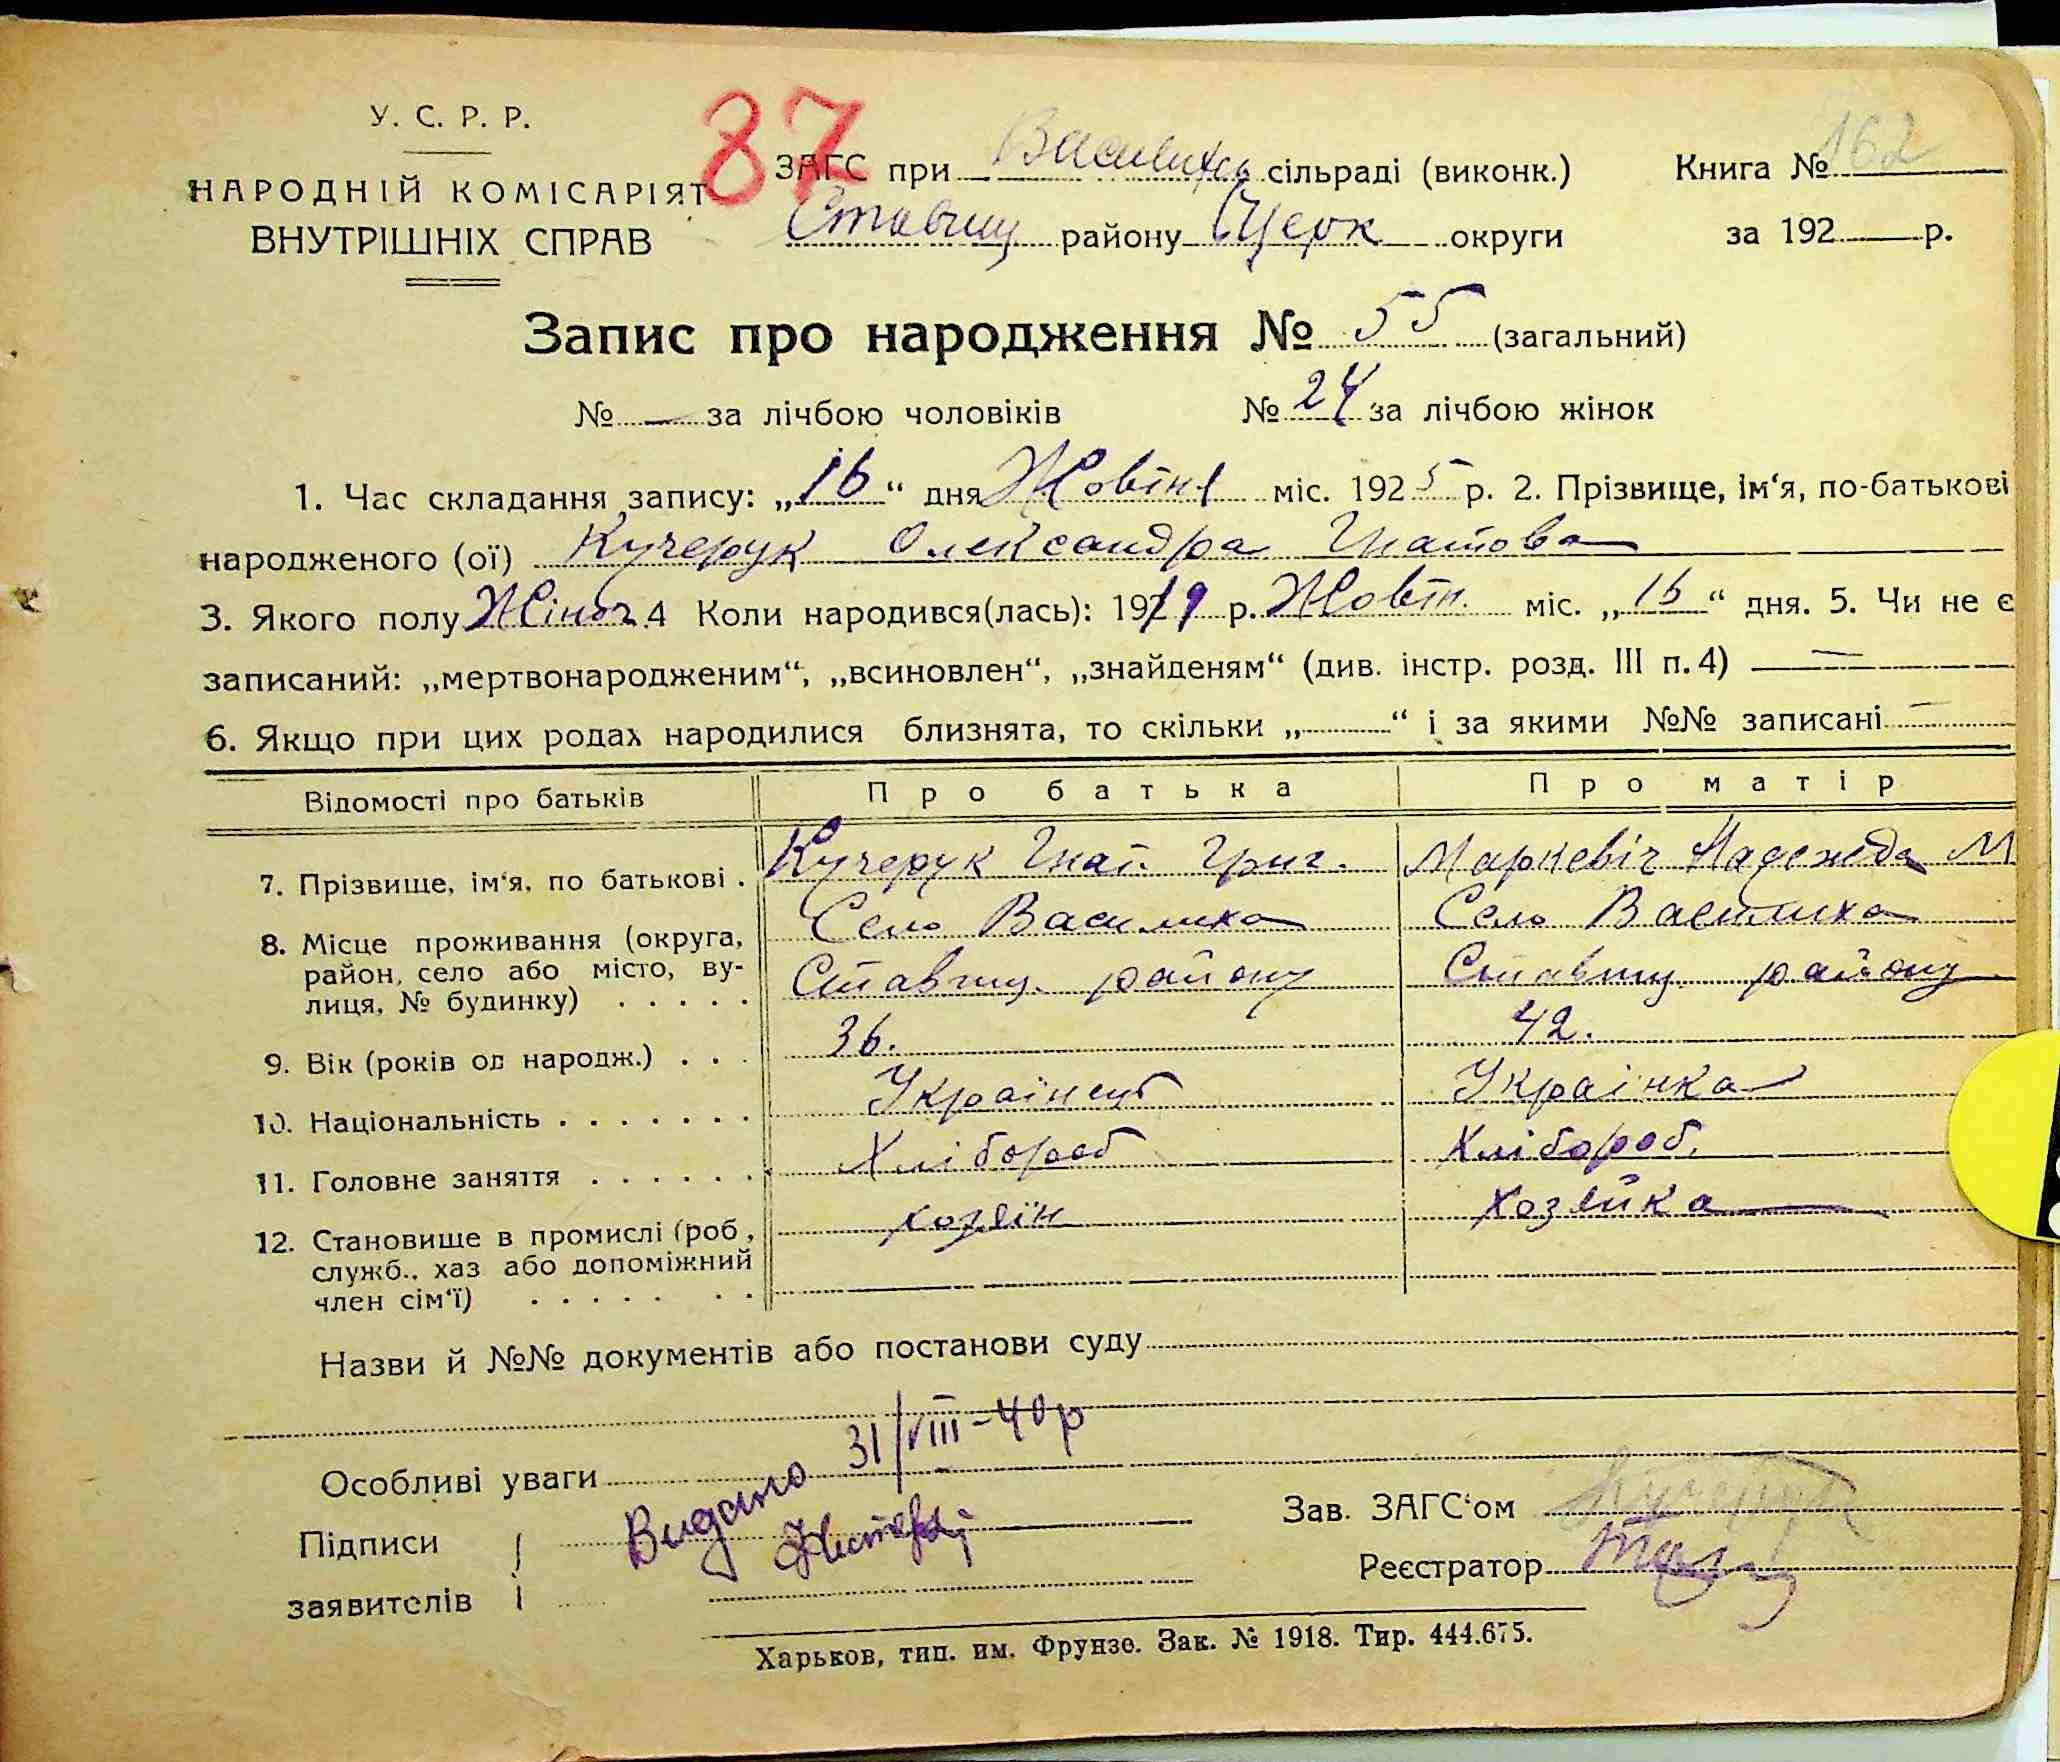 У. С. Р. Р.
НАРОДНІЙ КОМІСАРІЯТ
ВНУТРІШНІХ СПРАВ
87
ЗАГС при Василихи сільраді (виконк.)
Ставищ району Церк округи
Книга № 162
за 192 р.
Запис про народження № 55 (загальний)
№ — за лічбою чоловіків № 24 за лічбою жінок
1. Час складання запису: „16“ дня Жовтня міс. 1925 р. 2. Прізвище, ім‘я, по-батькові
народженого (ої) Кучерук Олександра Гнатова
3. Якого полу Жіноч. 4 Коли народився(лась): 1919 р. Жовтн. міс. „16“ дня. 5. Чи не є
записаний: „мертвонародженим“, „всиновлен“, „знайденям“ (див. інстр. розд. III п. 4) —
6. Якщо при цих родах народилися близнята, то скільки „—“ і за якими №№ записані —
Відомості про батьків Про батька Про матір
7. Прізвище, ім‘я, по батькові . Кучерук Гнат. Григ. Маркевіч Надежда М
8. Місце проживання (округа, район, село або місто, вулиця, № будинку) . . . . . Село Василиха Ставищ. району Село Василиха Ставищ. району
9. Вік (років од народж.) . . . 36. 42.
10. Національність . . . . . . . Українець Українка
11. Головне заняття . . . . . . Хлібороб Хлібороб.
12. Становище в промислі (роб, служб., хаз або допоміжний член сім‘ї) . . . . . . . хозяїн хозяйка
Назви й №№ документів або постанови суду
Особливі уваги
Видано 31/VIII-40р
Підписи
заявителів
Зав. ЗАГС‘ом
Реєстратор
Харьков, тип. им. Фрунзе. Зак. № 1918. Тир. 444.675.